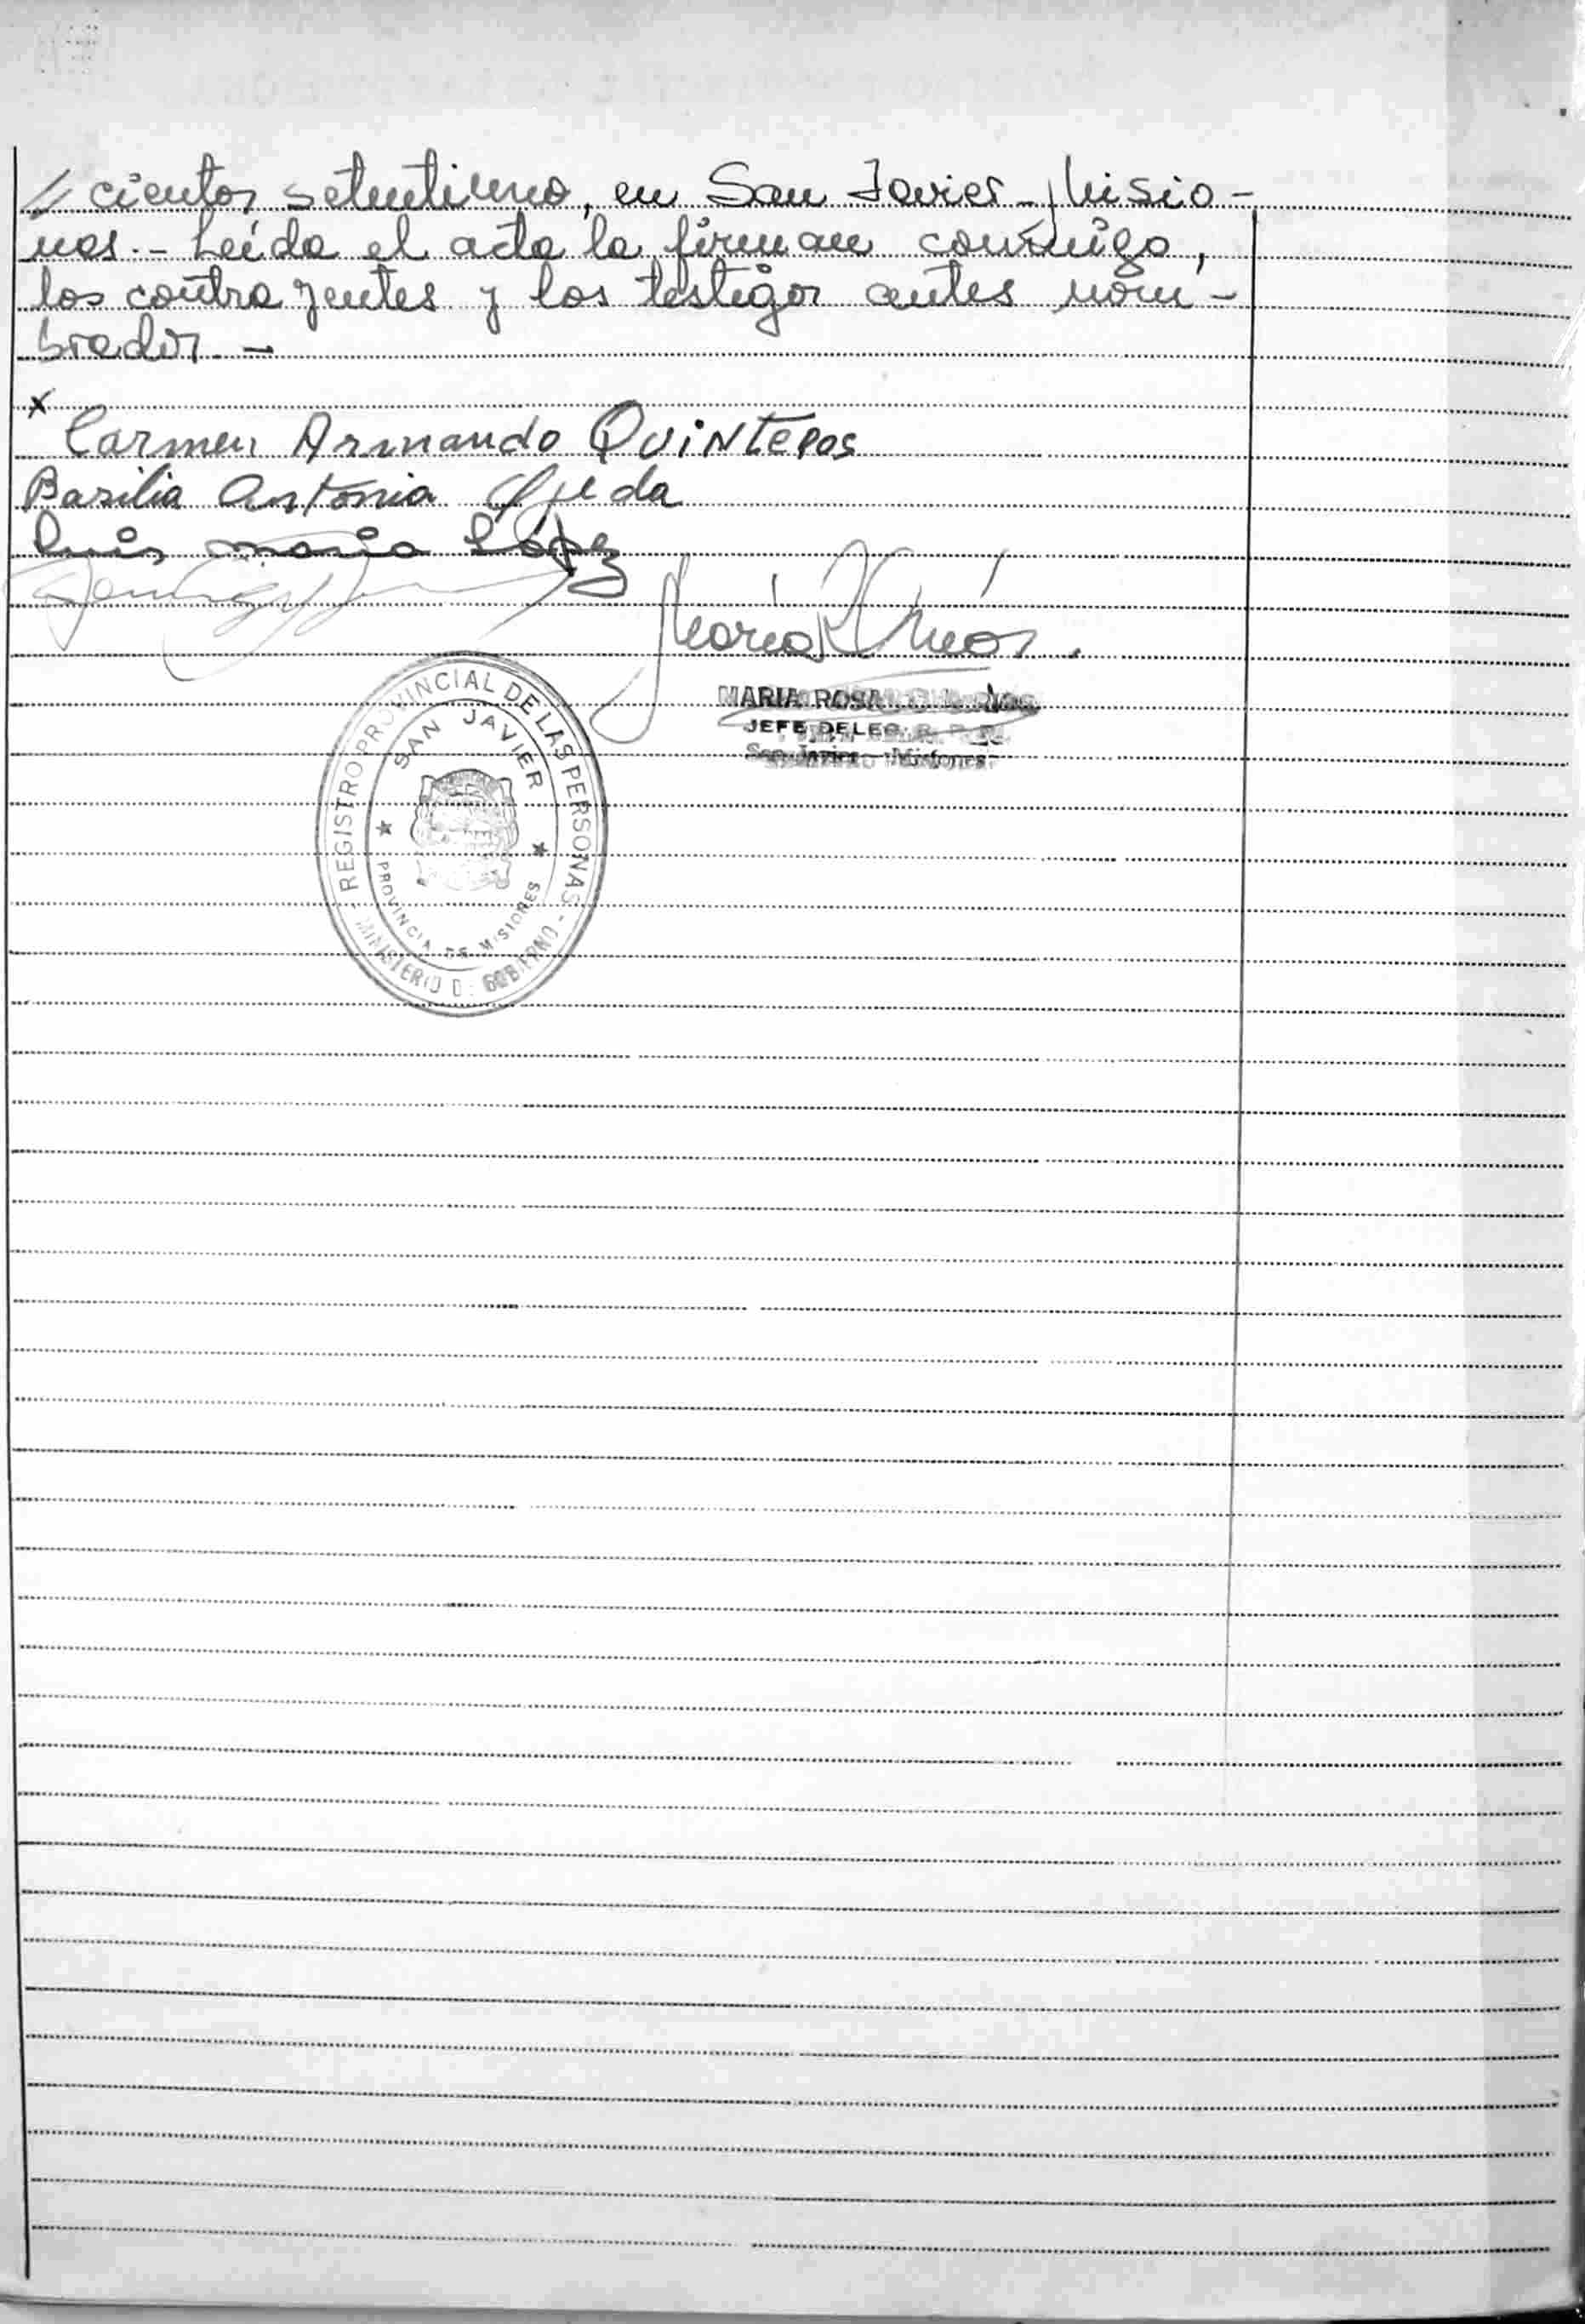 // cientos setentiuno, en San Javier - Misio -
nes. - Leída el acta la firman conmigo,
los contrayentes y los testigos antes nom -
brados. -
x
Carmen Armando Quinteros
Basilia Antonia Ojeda
Luis maria López
Maria R
MARIA ROSA
JEFE DELEG. R. P. P.
San Javier - Misiones
REGISTRO PROVINCIAL DE LAS PERSONAS -
SAN JAVIER
PROVINCIA DE MISIONES
MINISTERIO DE GOBIERNO -